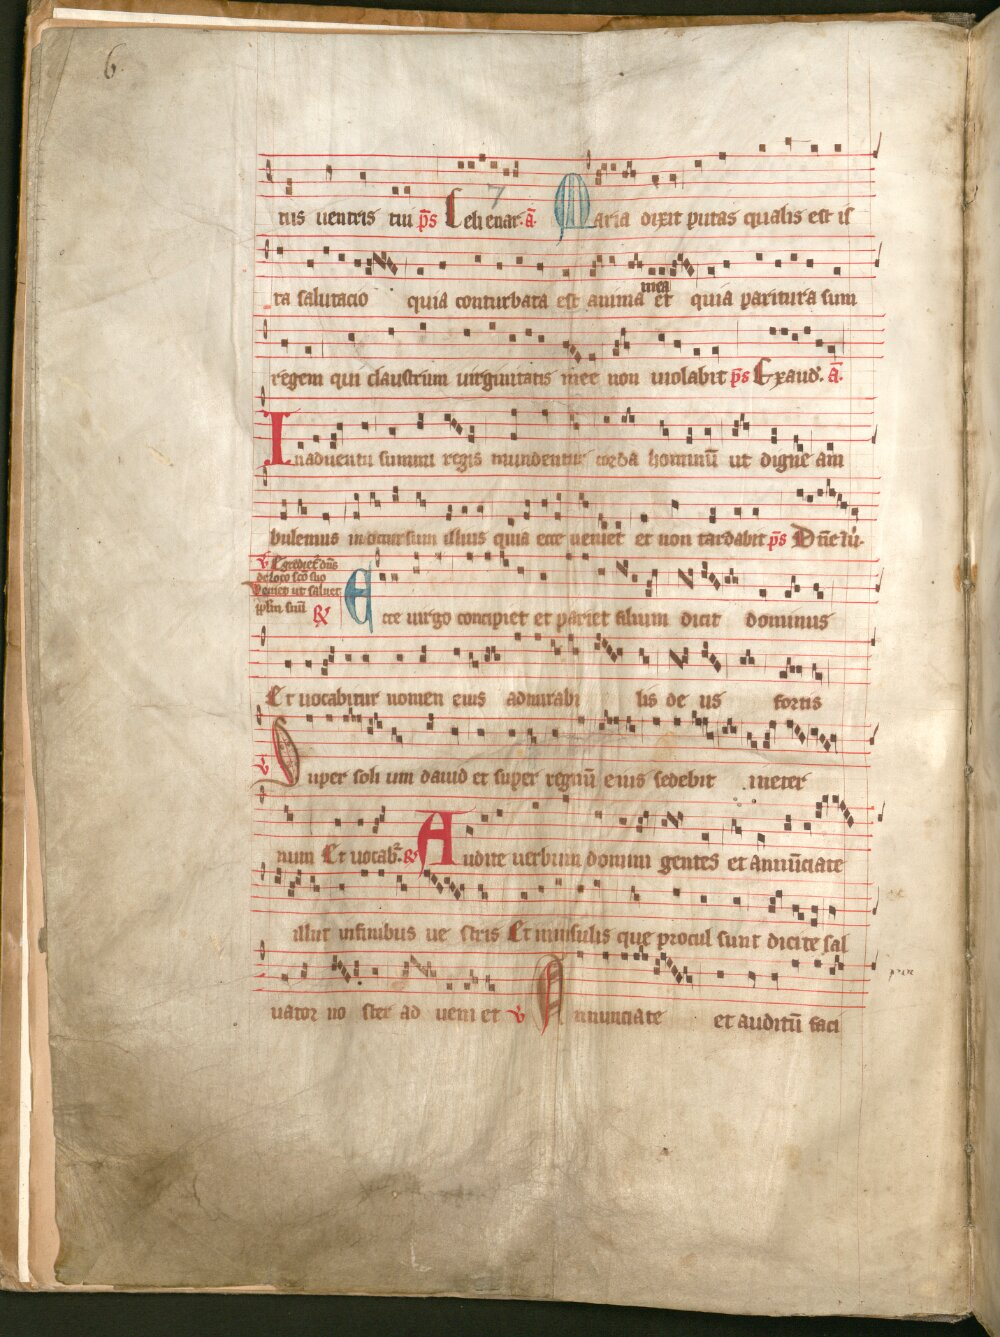 6.
tus uentris tui p̄s Celi enar. ā. Maria dixit putas qualis est is
ta salutacio quia conturbata est anima mea et quia paritura sum
regem qui claustrum uirginitatis mee non uiolabit p̄s Exaud. ā.
In aduentu summi regis mundentur corda hominū ut digne am
bulemus in occursum illius quia ecce ueniet et non tardabit p̄s Dn̄e in
v Egrediet dn̄s
de loco sc̄o suo
ueniet ut saluet
pplm suū R
Ecce uirgo concipiet et pariet filium dicit dominus
Et uocabitur nomen eius admirabi lis de us fortis
v Super soli um dauid et super regnū eius sedebit in eter
num Et uocab. R Audite uerbum domini gentes et annūciate
illut in finibus ue stris Et in insulis que procul sunt dicite sal
uator no ster ad ueni et v Annunciate et auditū faci